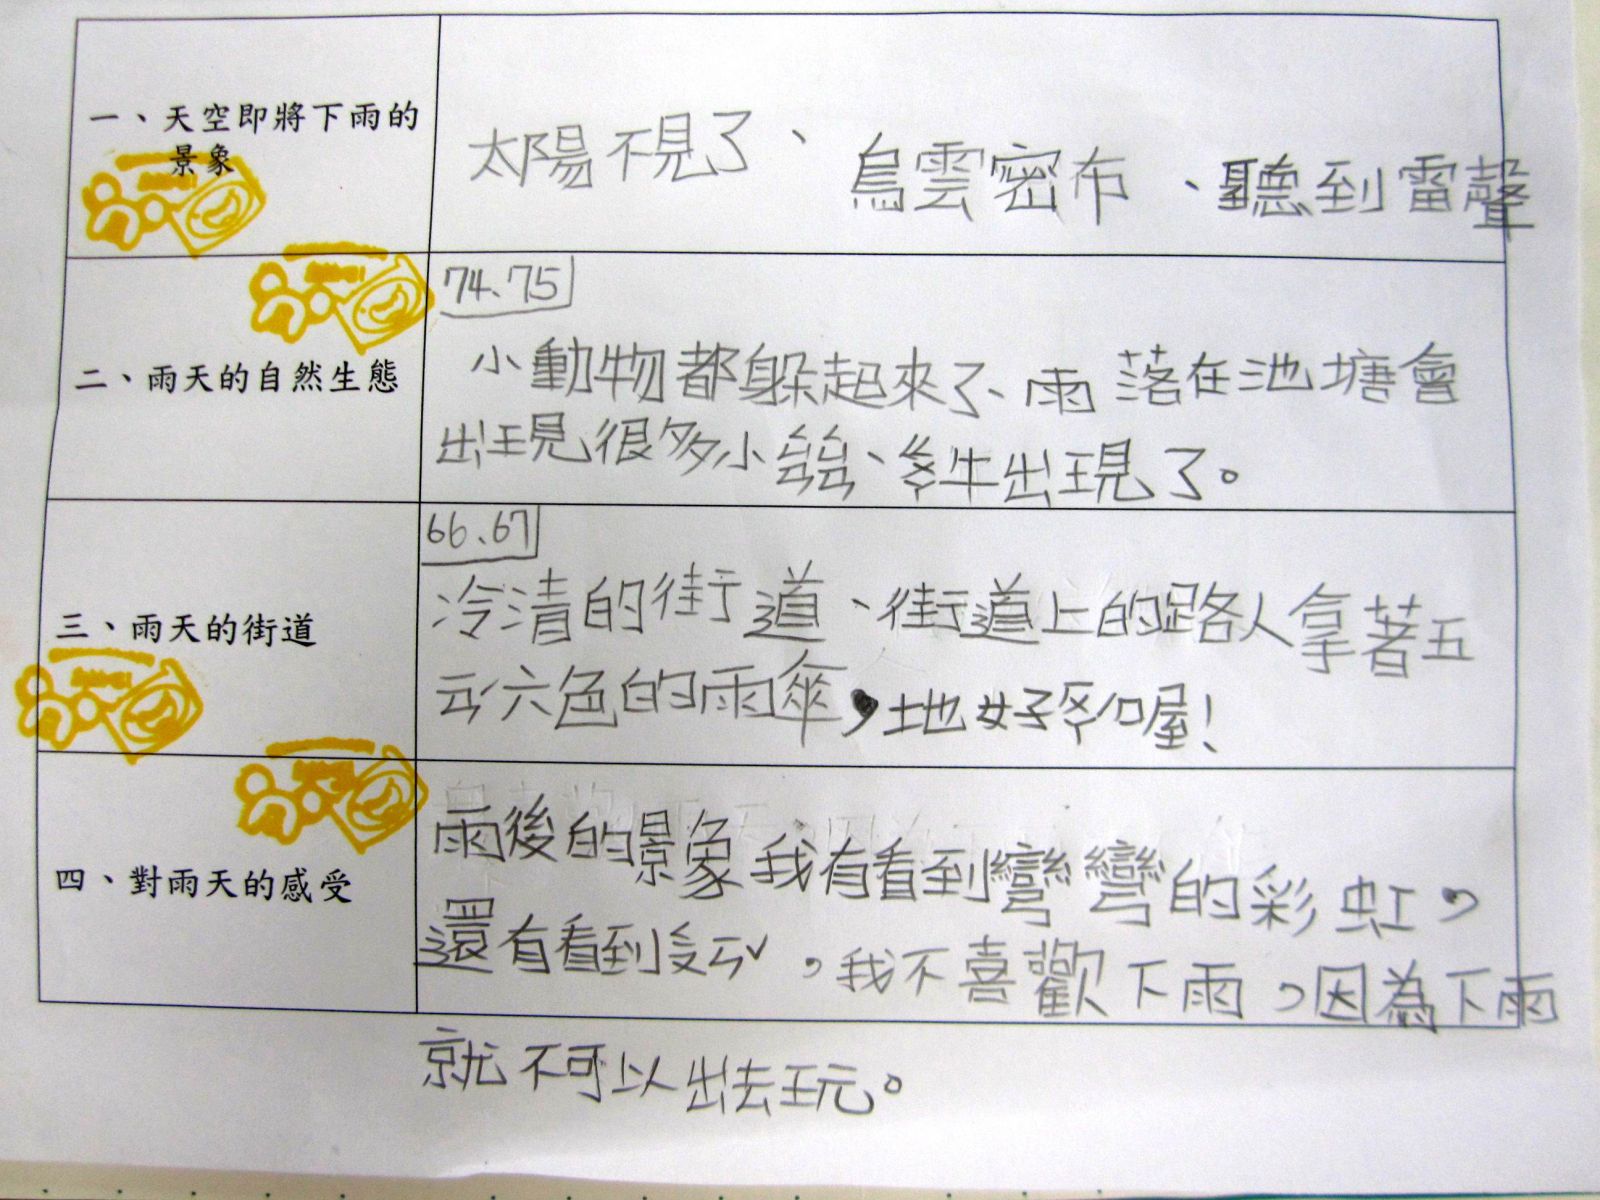 一、天空即將下雨的
景象
太陽不見了、烏雲密布、聽到雷聲
二、雨天的自然生態
74.75
小動物都躲起來了、雨落在池塘會
出現很多小、牛出現了。
三、雨天的街道
66.67
冷清的街道、街道上的路人拿著五
六色的雨傘,地好喔!
四、對雨天的感受
雨後的景象我有看到彎彎的彩虹,
還有看到,我不喜歡下雨,因為下雨
就不可以出去玩。